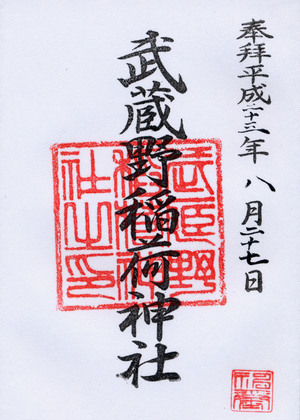 奉拝平成二十三年八月二十七日
武蔵野稲荷神社